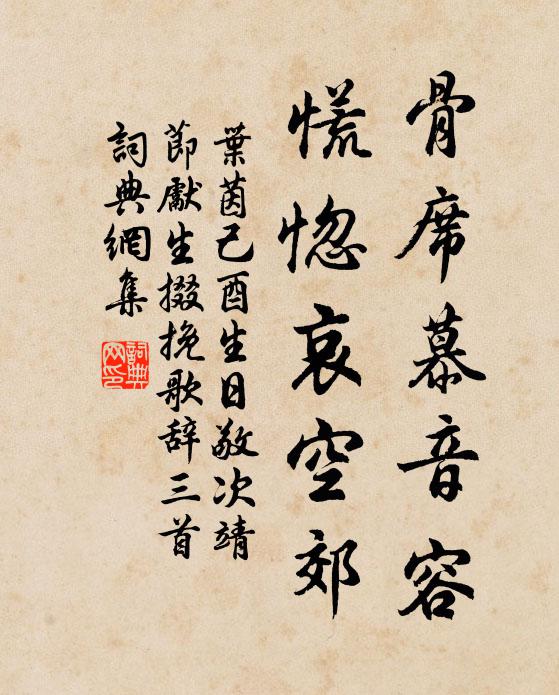 骨席慕音容
慌惚哀空郊
葉茵己酉生日敬次靖
節獻生掇挽歌辞三首
詞典網集
詞典網印